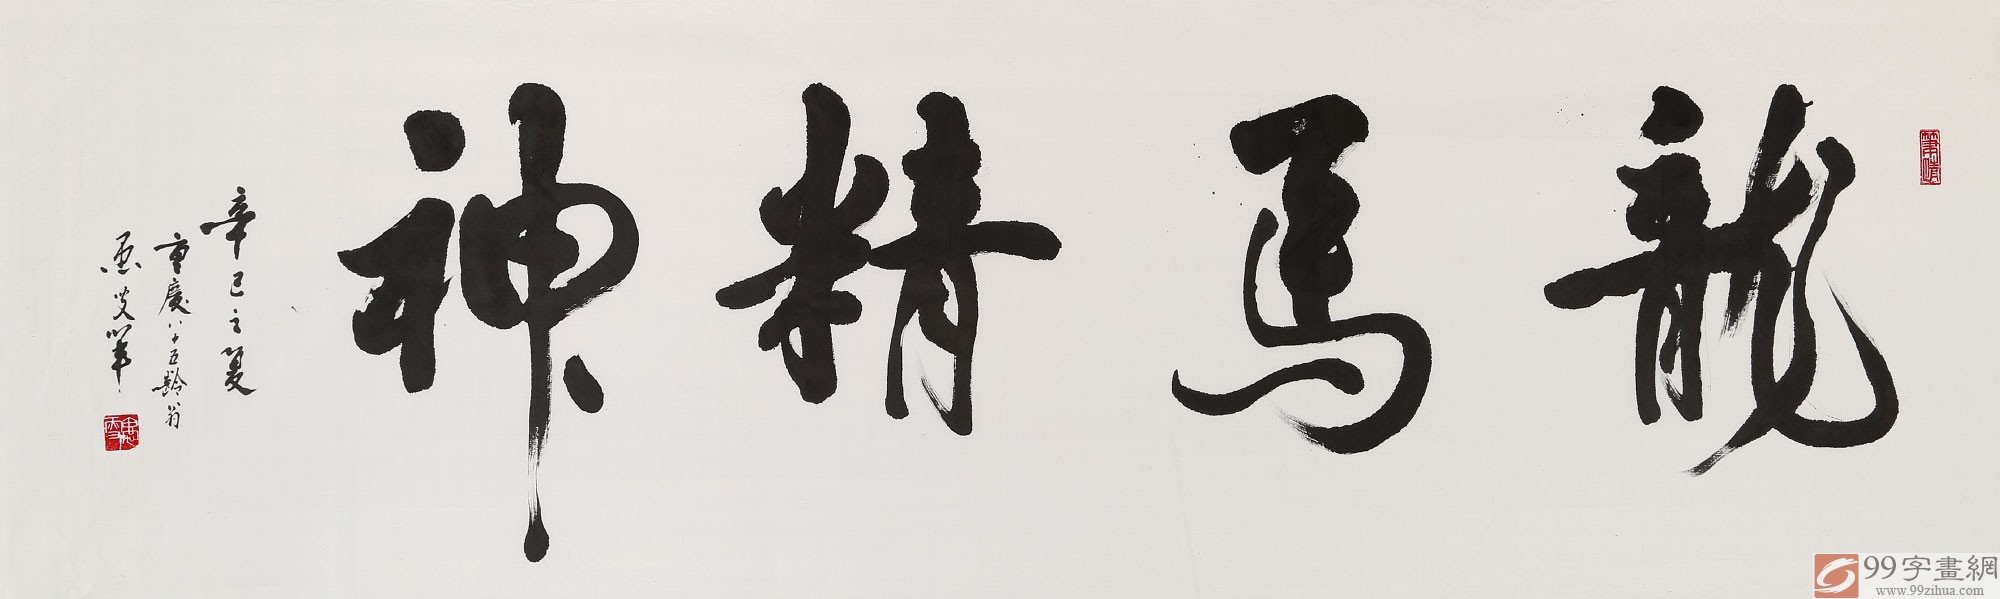 龍馬精神
辛巳之夏
重慶八十五齡翁
愚叟筆
99字畫網
www.99zihua.com